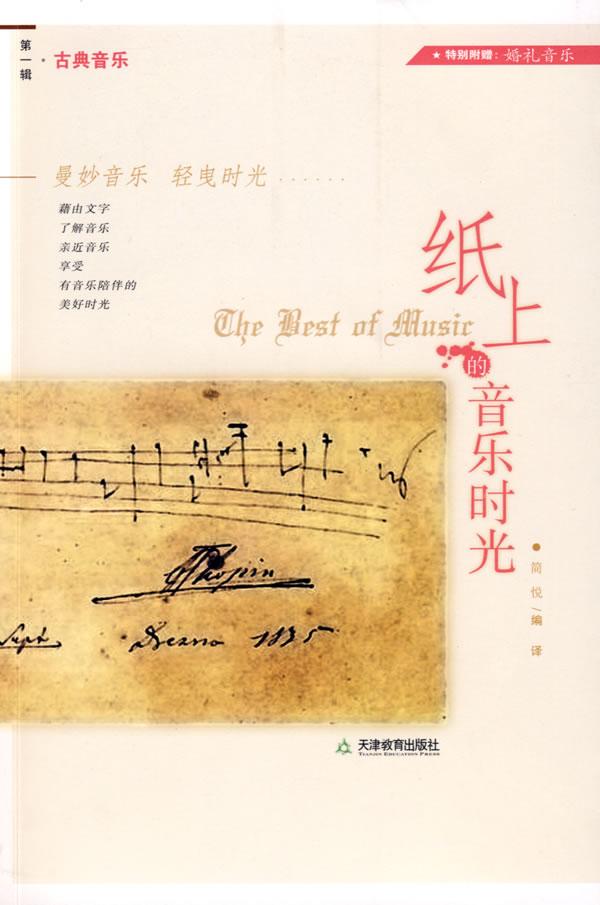 第一辑·古典音乐
★特别附赠：婚礼音乐
曼妙音乐 轻曳时光······
藉由文字
了解音乐
亲近音乐
享受
有音乐陪伴的
美好时光
纸上的音乐时光
The Best of Music
Chopin
Sept. Drezno 1835
●简悦/编译
天津教育出版社
TIANJIN EDUCATION PRESS